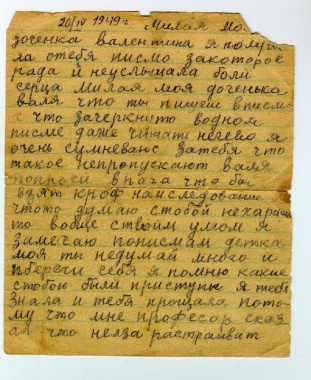 20/IV 1949 г. Милая мо
доченка валентина я получи
ла отебя писмо закоторое
рада и неуслышала боли
серца милая моя доченька
валя что ты пишеш вписмо
х что зачеркнуто водном
писме даже читать нечево я
очень сумневаюс затебя что
такое непропускают валя
попроси врача что бы
взят кров наиследование
чтото думаю стобой нехарашо
то вобще ствоим умом я
замечаю пописмам детка
моя ты недумай много и
побереги себя я помню какие
стобою были приступы я тебя
знала и тебя прощала пото
му что мне професар сказ
ал что нелза растраиват